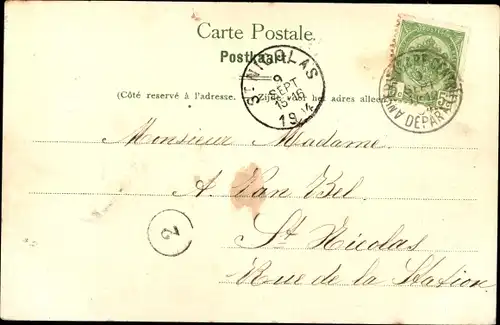 Carte Postale.
Postkaart.
(Côté reservé à l'adresse. voor het adres alleen
ST NICOLAS
9
SEPT
15-16
19
DEPART
Monsieur Madame.
A. Van Bel
St Nicolas
Rue de la Station
2